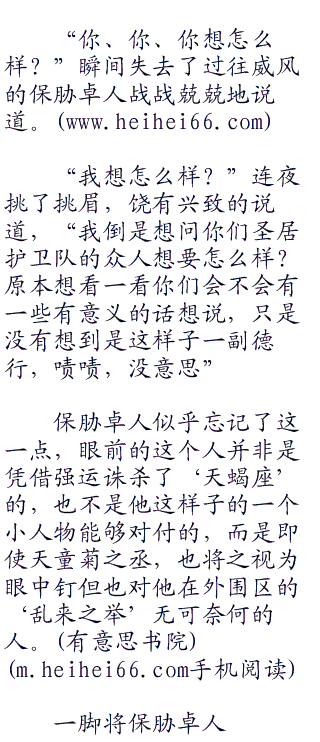 “你、你、你想怎么
样？”瞬间失去了过往威风
的保胁卓人战战兢兢地说
道。(www.heihei66.com)
“我想怎么样？”连夜
挑了挑眉，饶有兴致的说
道，“我倒是想问你们圣居
护卫队的众人想要怎么样?
原本想看一看你们会不会有
一些有意义的话想说，只是
没有想到是这样子一副德
行，啧啧，没意思”
保胁卓人似乎忘记了这
一点，眼前的这个人并非是
凭借强运诛杀了‘天蝎座’
的，也不是他这样子的一个
小人物能够对付的，而是即
使天童菊之丞，也将之视为
眼中钉但也对他在外围区的
‘乱来之举’无可奈何的
人。(有意思书院)
(m.heihei66.com手机阅读)
一脚将保胁卓人